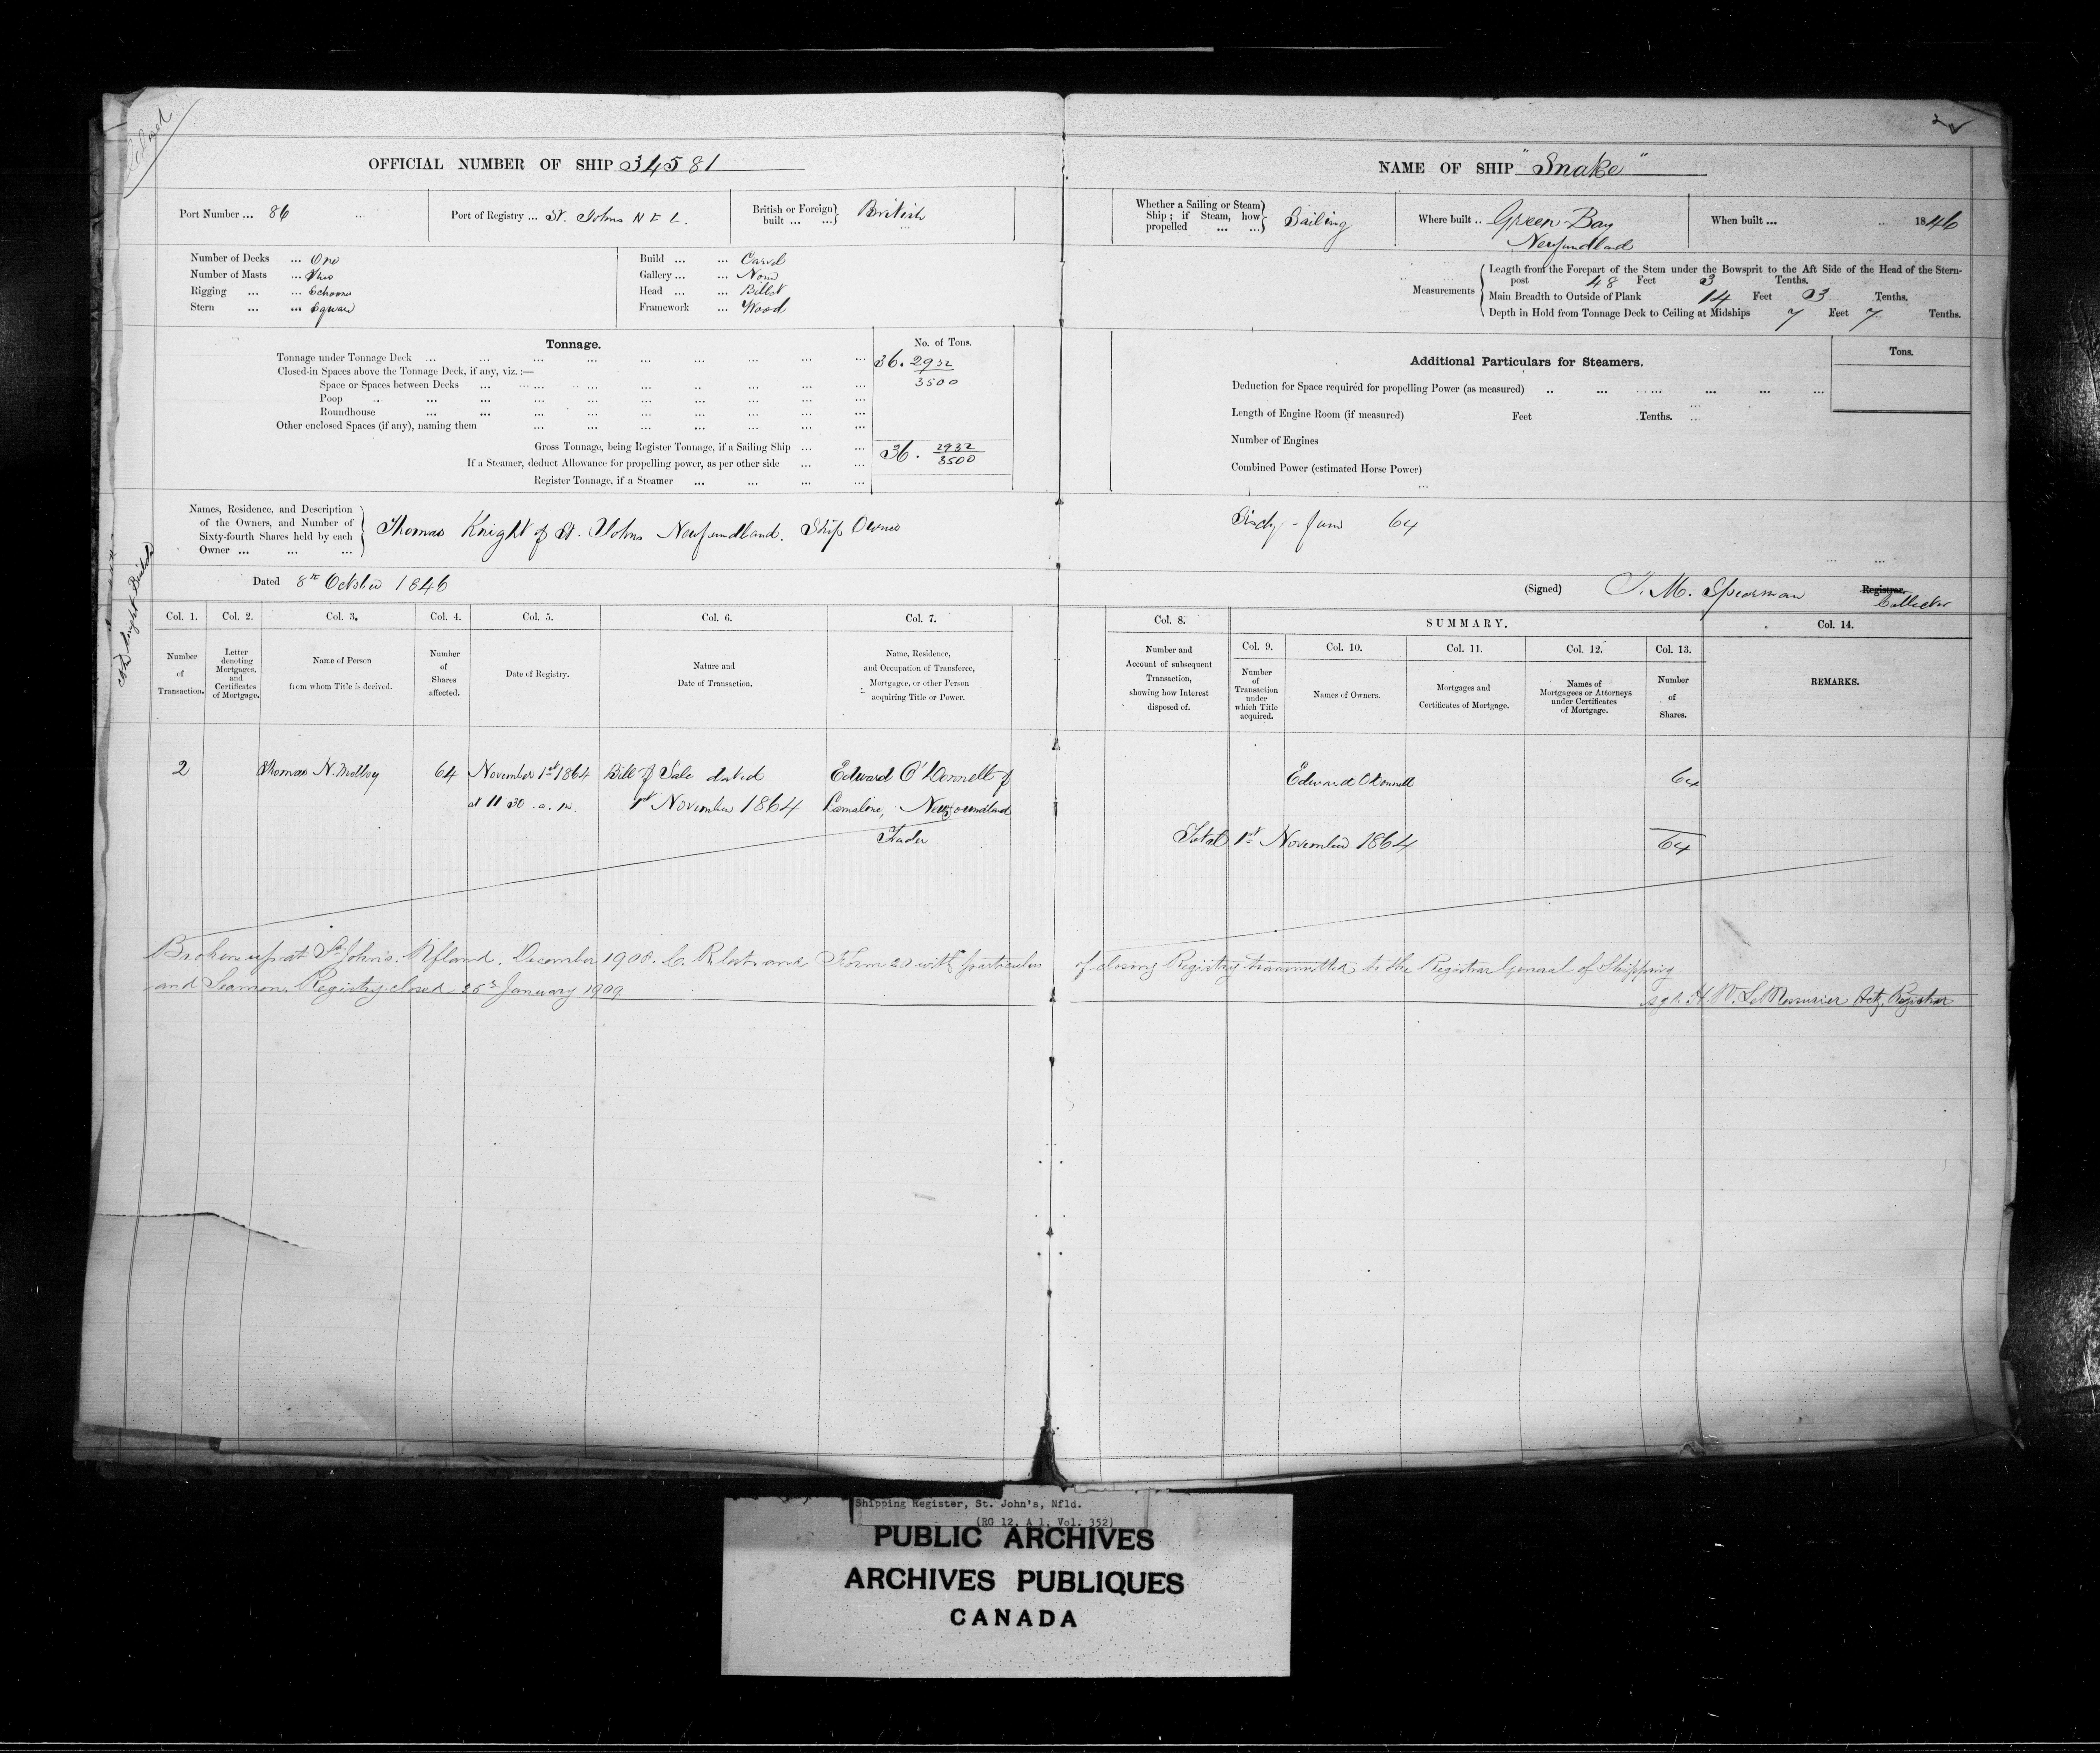 OFFICIAL NUMBER OF SHIP 34581
NAME OF SHIP "Snake"
Port Number ... 86
Port of Registry ... St. Johns N F L.
British or Foreign built ... ... British
Whether a Sailing or Steam Ship; if Steam, how propelled ... ... Sailing
Where built .. Green Bay Newfundland
When built ... 1846
Number of Decks ... One
Number of Masts ... Two
Rigging ... ... Schooner
Stern ... ... Square
Build ... ... Carvel
Gallery ... ... None
Head ... ... Billet
Framework ... Wood
Measurements
Length from the Forepart of the Stem under the Bowsprit to the Aft Side of the Head of the Stern-
post 48 Feet 3 Tenths.
Main Breadth to Outside of Plank 14 Feet 3 Tenths.
Depth in Hold from Tonnage Deck to Ceiling at Midships 7 Feet 7 Tenths.
Tonnage.
No. of Tons.
Tonnage under Tonnage Deck ... 36. 2932/3500
Closed-in Spaces above the Tonnage Deck, if any, viz. :—
Space or Spaces between Decks ...
Poop ...
Roundhouse ...
Other enclosed Spaces (if any), naming them ...
Gross Tonnage, being Register Tonnage, if a Sailing Ship ... 36. 2932/3500
If a Steamer, deduct Allowance for propelling power, as per other side ...
Register Tonnage, if a Steamer ...
Additional Particulars for Steamers.
Tons.
Deduction for Space required for propelling Power (as measured) ..
Length of Engine Room (if measured) Feet Tenths.
Number of Engines
Combined Power (estimated Horse Power)
Names, Residence, and Description
of the Owners, and Number of
Sixty-fourth Shares held by each
Owner ... ... ...
Thomas Knight of St. Johns Newfundland. Ship Owner
64
Dated 8th October 1846
(Signed) Spearman Registrar. Collector
Col. 1.
Number of Transaction.
Col. 2.
Letter denoting Mortgages, and Certificates of Mortgage.
Col. 3.
Name of Person from whom Title is derived.
Col. 4.
Number of Shares affected.
Col. 5.
Date of Registry.
Col. 6.
Nature and Date of Transaction.
Col. 7.
Name, Residence, and Occupation of Transferee, Mortgagee, or other Person acquiring Title or Power.
Col. 8.
Number and Account of subsequent Transaction, showing how Interest disposed of.
SUMMARY.
Col. 9.
Number of Transaction under which Title acquired.
Col. 10.
Names of Owners.
Col. 11.
Mortgages and Certificates of Mortgage.
Col. 12.
Names of Mortgagees or Attorneys under Certificates of Mortgage.
Col. 13.
Number of Shares.
Col. 14.
REMARKS.
2 Thomas N. Molloy 64 November 1st 1864 Bill of Sale dated Edward O'Donnell of
at 11 30 a.m. 1st November 1864 Lamaline, Newfoundland
Trader
Edward O'Donnell 64
Total 1st November 1864 64
Broken up at St John's. Nfland. December 1908. and Form 20 with particulars of closing Registry transmitted to the Registrar General of Shipping
and Seamen. Registry closed 25th January 1909
sgd. H. W. LeMessurier Actg. Registrar
Shipping Register, St. John's, Nfld.
(RG 12, A 1, Vol. 352)
PUBLIC ARCHIVES
ARCHIVES PUBLIQUES
CANADA